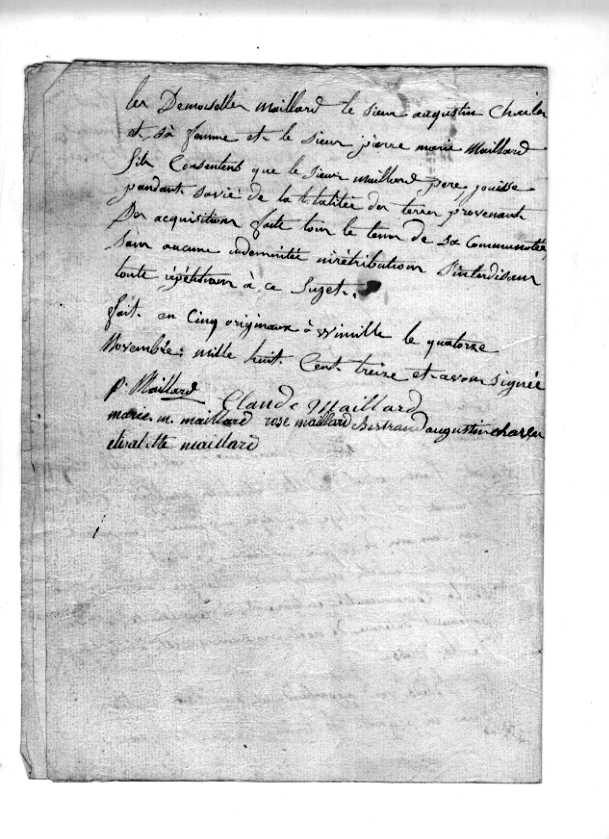 les Demoiselles Maillard le sieur augustin Charlon
et sa femme et le sieur pierre marie Maillard
fils Consentent que le sieur Maillard pere jouisse
pandant sa vie de la totalitée des terres provenant
Des acquisitions faite tous le tems de sa Communotée
sans aucune indemnitée ni rétributions s'interdisant
toute répétition à ce Sujet.
fait en Cinq originaux à Wimille le quatorze
Novembre mille huit Cent treize et avons signée
p. Maillard Claude Maillard
marie. m. maillard rose maillard Bertrand augustin
elisabette maillard